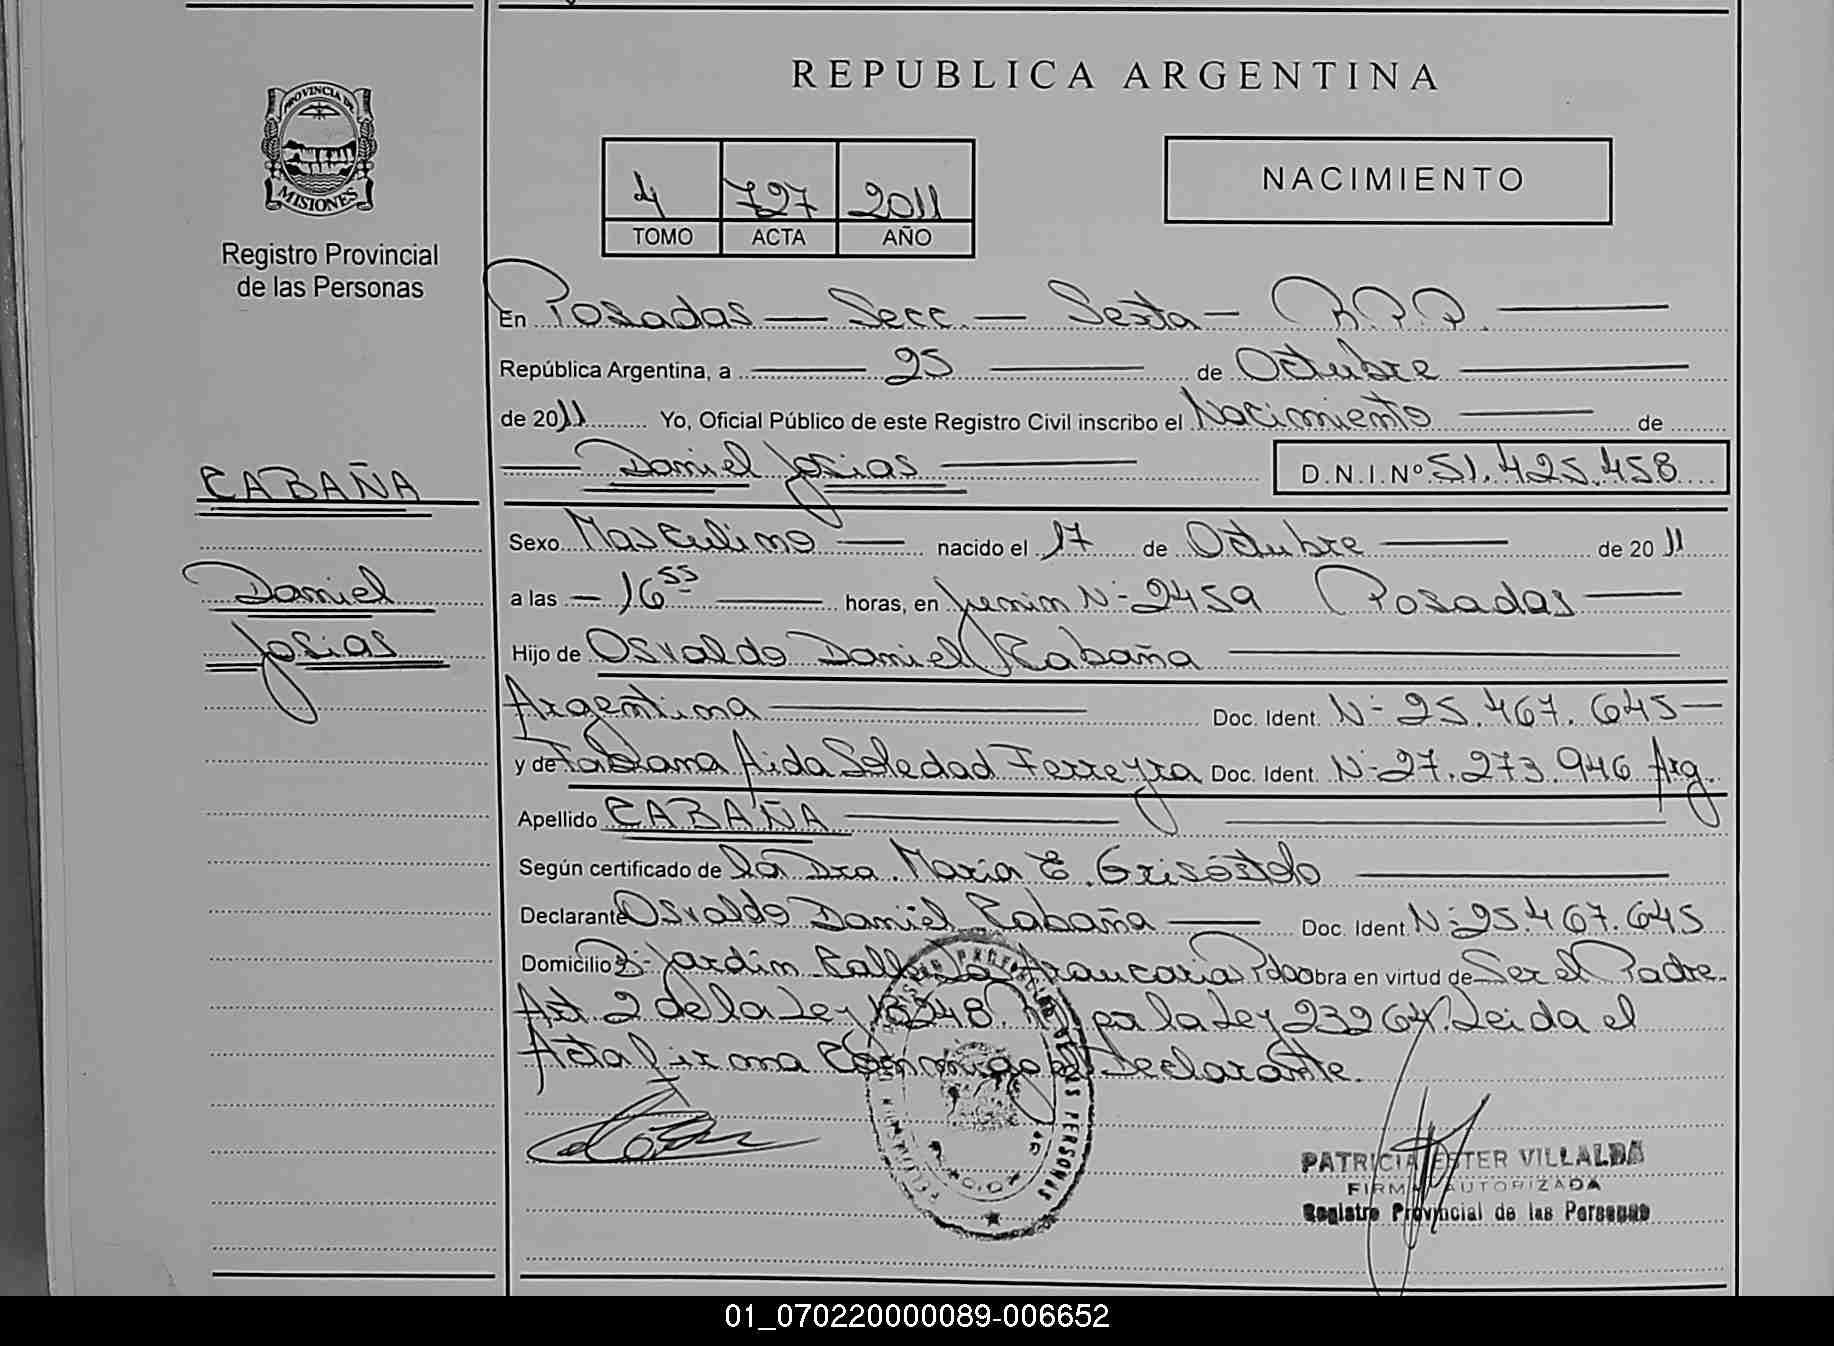 REPUBLICA ARGENTINA
PROVINCIA DE
MISIONES
Registro Provincial
de las Personas
4 727 2011
TOMO ACTA AÑO
NACIMIENTO
En Posadas — Secc. — Sexta — R.P.P.
República Argentina, a 25 de Octubre
de 2011 Yo, Oficial Público de este Registro Civil inscribo el Nacimiento de
Daniel Josias D.N.I.Nº 51.425.458
CABAÑA
Daniel
Josias
Sexo Masculino nacido el 17 de Octubre de 2011
a las 16 55 horas, en Junin Nº 2459 Posadas
Hijo de Osvaldo Daniel Cabaña
Argentina Doc. Ident. Nº 25.467.645
y de Fabiana Aida Soledad Ferreyra Doc. Ident. Nº 27.273.946 Arg.
Apellido CABAÑA
Según certificado de la Dra. Maria E. Grisóstolo
Declarante Osvaldo Daniel Cabaña Doc. Ident Nº 25.467.645
Domicilio Bº Jardin Calle La Araucaria Pdas obra en virtud de Ser el Padre.
Art. 2 de la Ley 18248 por la Ley 23264. Leida el
Acta firma Conmigo el Declarante.
PATRICIA ESTER VILLALBA
FIRMA AUTORIZADA
Registro Provincial de las Personas
01_070220000089-006652